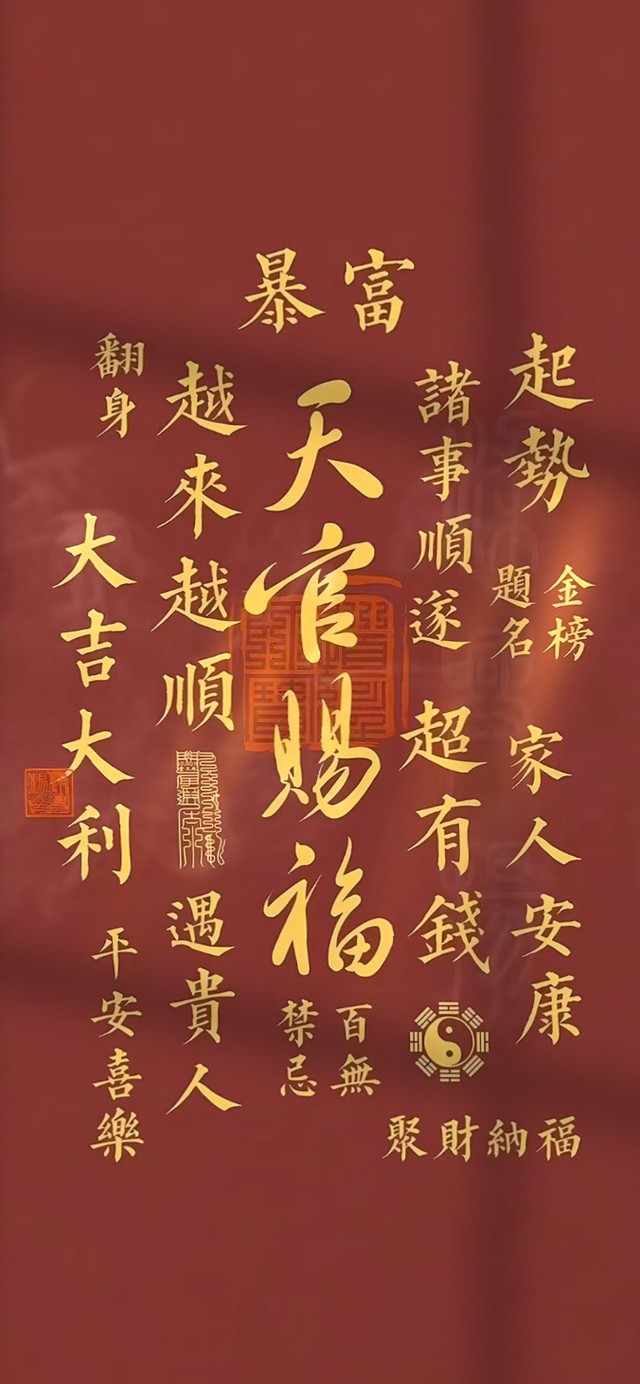 暴富
起勢
金榜
題名
家人安康
諸事順遂
超有錢
聚財納福
天官賜福
百無
禁忌
越來越順
遇貴人
翻身
大吉大利
平安喜樂